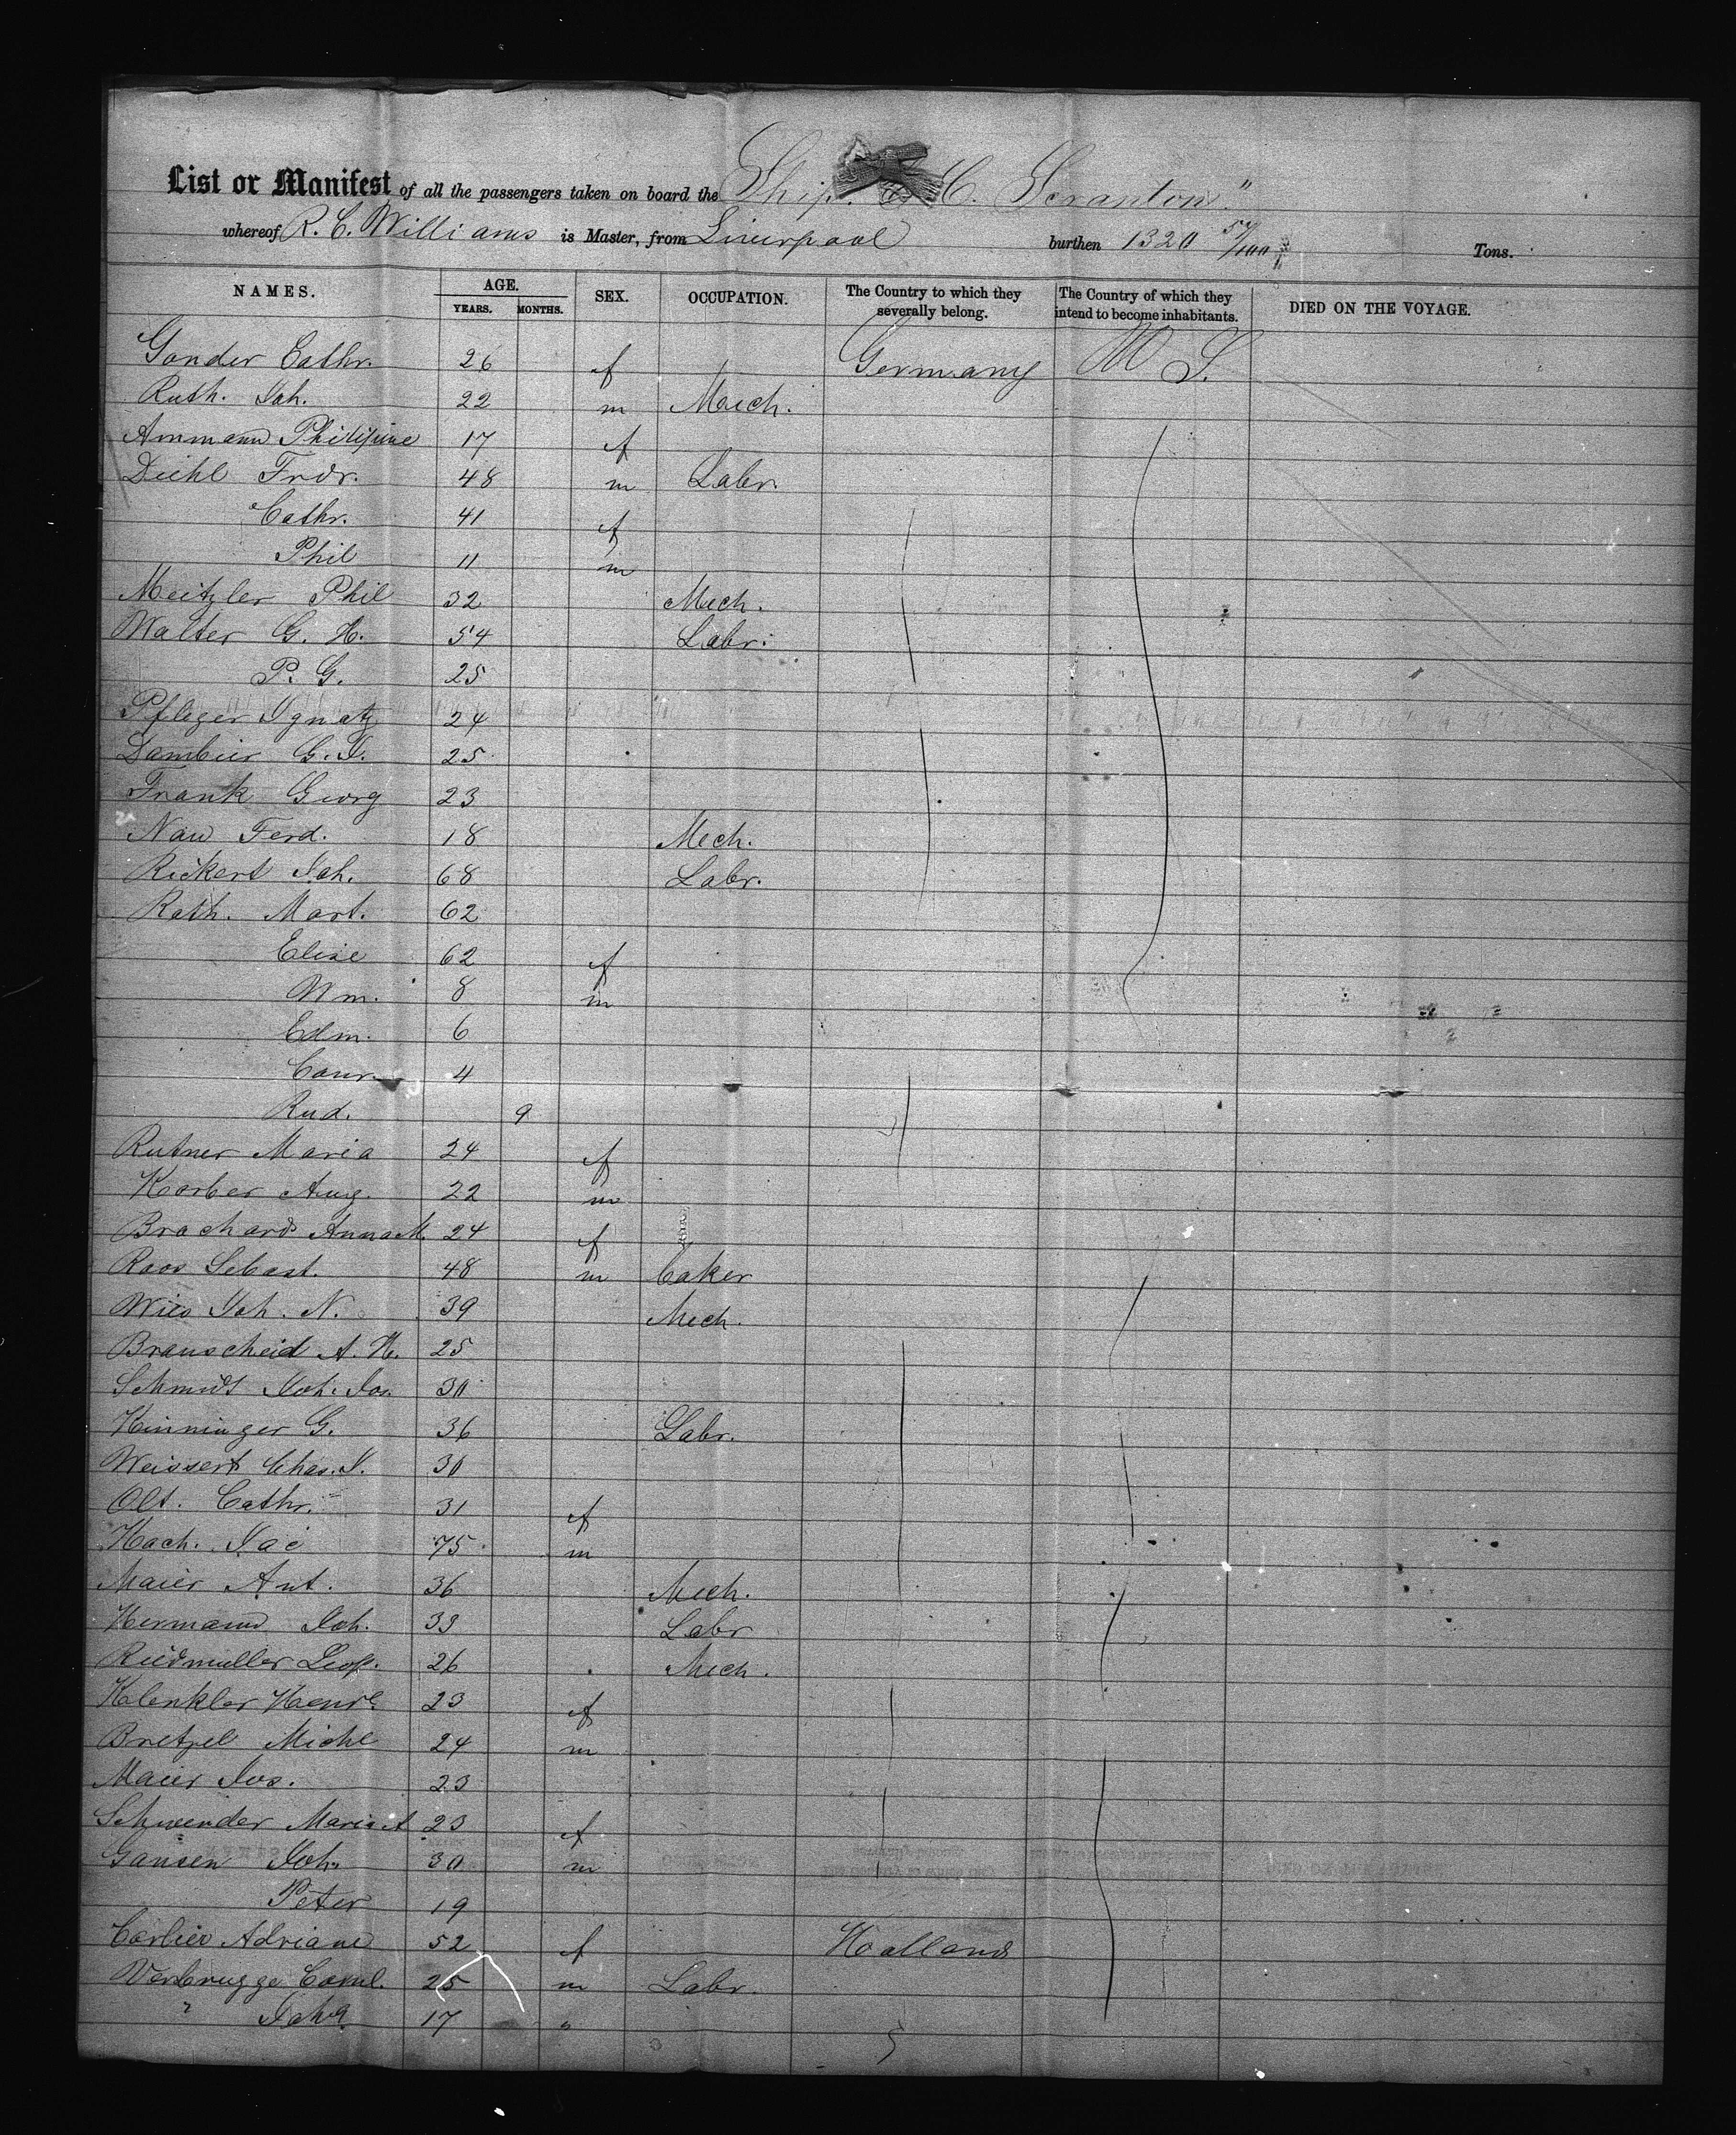 List or Manifest of all the passengers taken on board the Ship. C. Scranton"
whereof R. C. Williams is Master, from Liverpool burthen 1320 57/100 Tons.
NAMES. AGE. YEARS. MONTHS. SEX. OCCUPATION. The Country to which they severally belong. The Country of which they intend to become inhabitants. DIED ON THE VOYAGE.
Gander Cathr. 26 f Germany
Ruth. Joh. 22 m Mech.
Ammann Philipine 17 f
Diehl Frdr. 48 m Labr.
Cathr. 41 f
Phil 11 m
Meitzler Phil 32 Mech.
Walter G. H. 54 Labr.
P. G. 25
Pfleger Ignatz 24
Dambier G. J. 25
Frank Georg 23
Nau Ferd. 18 Mech.
Rickert Joh. 68 Labr.
Rath. Mart. 62
Elise 62 f
Wm. 8 m
Edm. 6
Conr. 4
Rud. 9
Rutner Maria 24 f
Korber Aug. 22 m
Brachard Anna M. 24 f
Roos Sebast. 48 m baker
Joh. N. 39 Mech.
Brauscheid A. H. 25
Schmidt Joh. Jos. 30
Hinninger G. 36 Labr.
Weissert Chas. J. 30
Olt. Cathr. 31 f
Hach. Jac 75 m
Maier Ant. 36 Mech.
Hermann Joh. 33 Labr
Riedmuller Leop. 26 Mech.
Klenkler Henre 23 f
Bretzel Michl 24 m
Maier Jos. 23
Schwender Maria A 23 f
Gansen Joh. 30 m
Peter 19
Carlier Adriane 52 f Holland
Verbrugge Cornl. 25 m Labr.
" 17 "